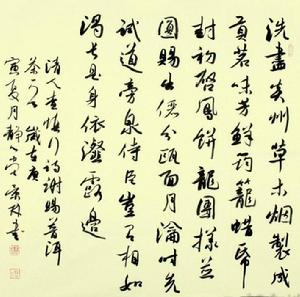 洗盡炎州草木烟製成
貢茗味芳鮮筠籠蜡帋
封初啓鳳餅龍團樣並
圓賜出儼分甌面月瀹时先
試道旁泉侍臣豈有相如
渴長是身依瀣露邊
清人查慎行詩謝賜普洱
茶一首 歲在庚
寅夏月靜堂書